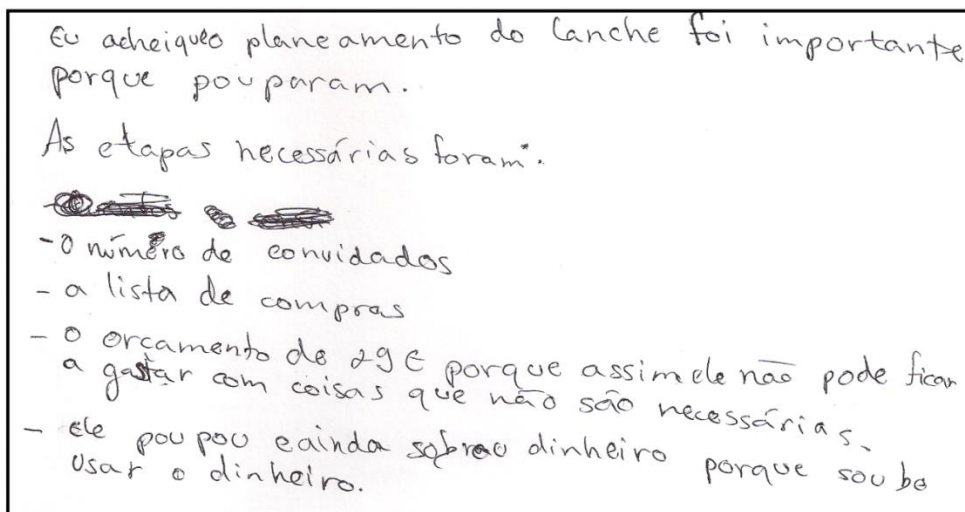 Eu acheiqueo planeamento do lanche foi importante
porque pouparam.
As etapas necessárias foram:
- O número de convidados
- a lista de compras
- o orçamento de 29€ porque assim ele não pode ficar
a gastar com coisas que não são necessárias.
- ele poupou eainda sobrao dinheiro porque soube
usar o dinheiro.